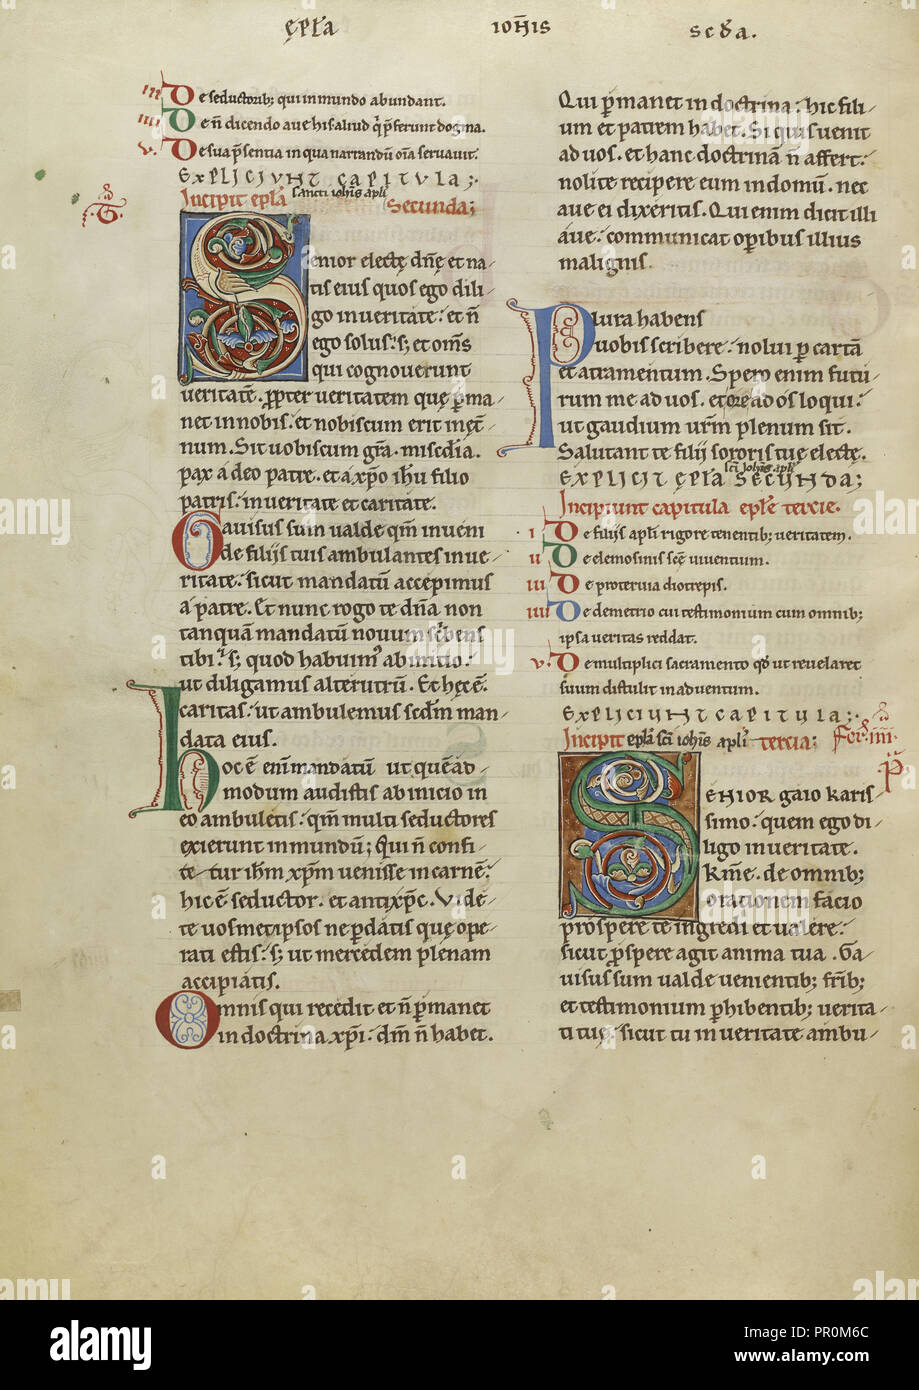 ępľa ioh̄is scďa.
iii De seductorib; qui in mundo abundant.
iiii De n̄ dicendo aue his aliud q̄ p̄ferunt dogma.
v. De sua p̄sentia in qua narrandū om̄ia seruauit.
EXPLICIUNT CAPITULA;
Incipit epl̄a sancti ioh̄is apl̄i Secunda;
Senior electę dn̄ę et na/
tis eius quos ego dili/
go in ueritate. et n̄
ego solus. s; et om̄s
qui cognouerunt
ueritatē. ꝓpter ueritatem quę p̄ma/
net in nobis. et nobiscum erit in ęt̄/
num. Sit uobiscum gr̄a. misc̄dia.
pax a deo patre. et a xp̄o ih̄u filio
patris. in ueritate et caritate.
Gauisus sum ualde qm̄ inueni
de filijs tuis ambulantes in ue/
ritate. sicut mandatū accepimus
a patre. Et nunc rogo te dn̄a non
tanquā mandatū nouum sc̄bens
tibi. s; quod habuim᾽ ab initio.
ut diligamus alterutrū. Et hęc ē.
caritas. ut ambulemus scd̄m man/
data eius.
Hoc ē enī mandatū ut quē ad/
modum audistis ab inicio in
eo ambuletis. qm̄ multi seductores
exierunt in mundū; Qui n̄ confi/
te-tur ih̄m xp̄m uenisse in carnē.
hic ē seductor. et antixp̄c. Vidē/
te uosmetipsos ne p̄datis quę ope/
rati estis. s; ut mercedem plenam
accipiatis.
Omnis qui recedit et n̄ p̄manet
in doctrina xp̄i. dm̄ n̄ habet.
Qui p̄manet in doctrina. hic fili/
um et patrem habet. Si quis uenit
ad uos. et hanc doctrinā n̄ affert.
nolite recipere eum in domū. nec
aue ei dixeritis. Qui enim dicit illi
aue. communicat oꝑibus illius
malignis.
Plura habens
uobis scribere. nolui p̄ cartā
et atramentum. Spero enim futu/
rum me ad uos. et os ad os loqui.
ut gaudium ur̄m plenum sit.
Salutant te filij sororis tuę electę.
EXPLICIT ĘPL̄A sc̄i ioh̄is apl̄i SECUNDA;
Incipiunt capitula epl̄e tercie.
i De filijs apl̄i rigore tenentib; ueritatem.
ii De elemosinis sc̄ę uiuentium.
iii De proteruia diotrepis.
iiii De demetrio cui testimonium cum omnib;
ipsa ueritas reddat.
v. De multiplici sacramento qd̄ ut reuelaret
suum distulit in aduentum.
EXPLICIUNT CAPITULA;
Incipit epl̄a sc̄i ioh̄is apl̄i tercia; Fer̄. iiii.
SENIOR gaio karis/
simo. quem ego di/
ligo in ueritate.
Km̄e. de omnib;
orationem facio
prospere te ingredi et ualere.
sicut p̄spere agit anima tua. Ga/
uisus sum ualde uenientib; fr̄ib;
et testimonium p̄hibentib; uerita/
ti tuę. sicut tu in ueritate ambu/
alamy
alamy stock photo
Image ID: PR0M6C
www.alamy.com